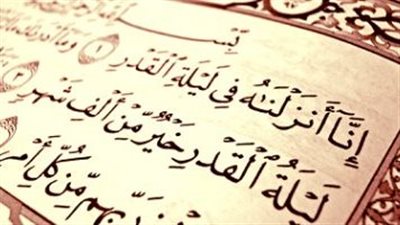 بِسْمِ ٱللَّهِ
إِنَّآ أَنزَلْنَٰهُ فِى لَيْلَةِ ٱلْقَدْرِ ١ وَمَآ
لَيْلَةُ ٱلْقَدْرِ خَيْرٌ مِّنْ أَلْفِ شَهْرٍ ٣
رَبِّهِم مِّن كُلِّ أَمْ